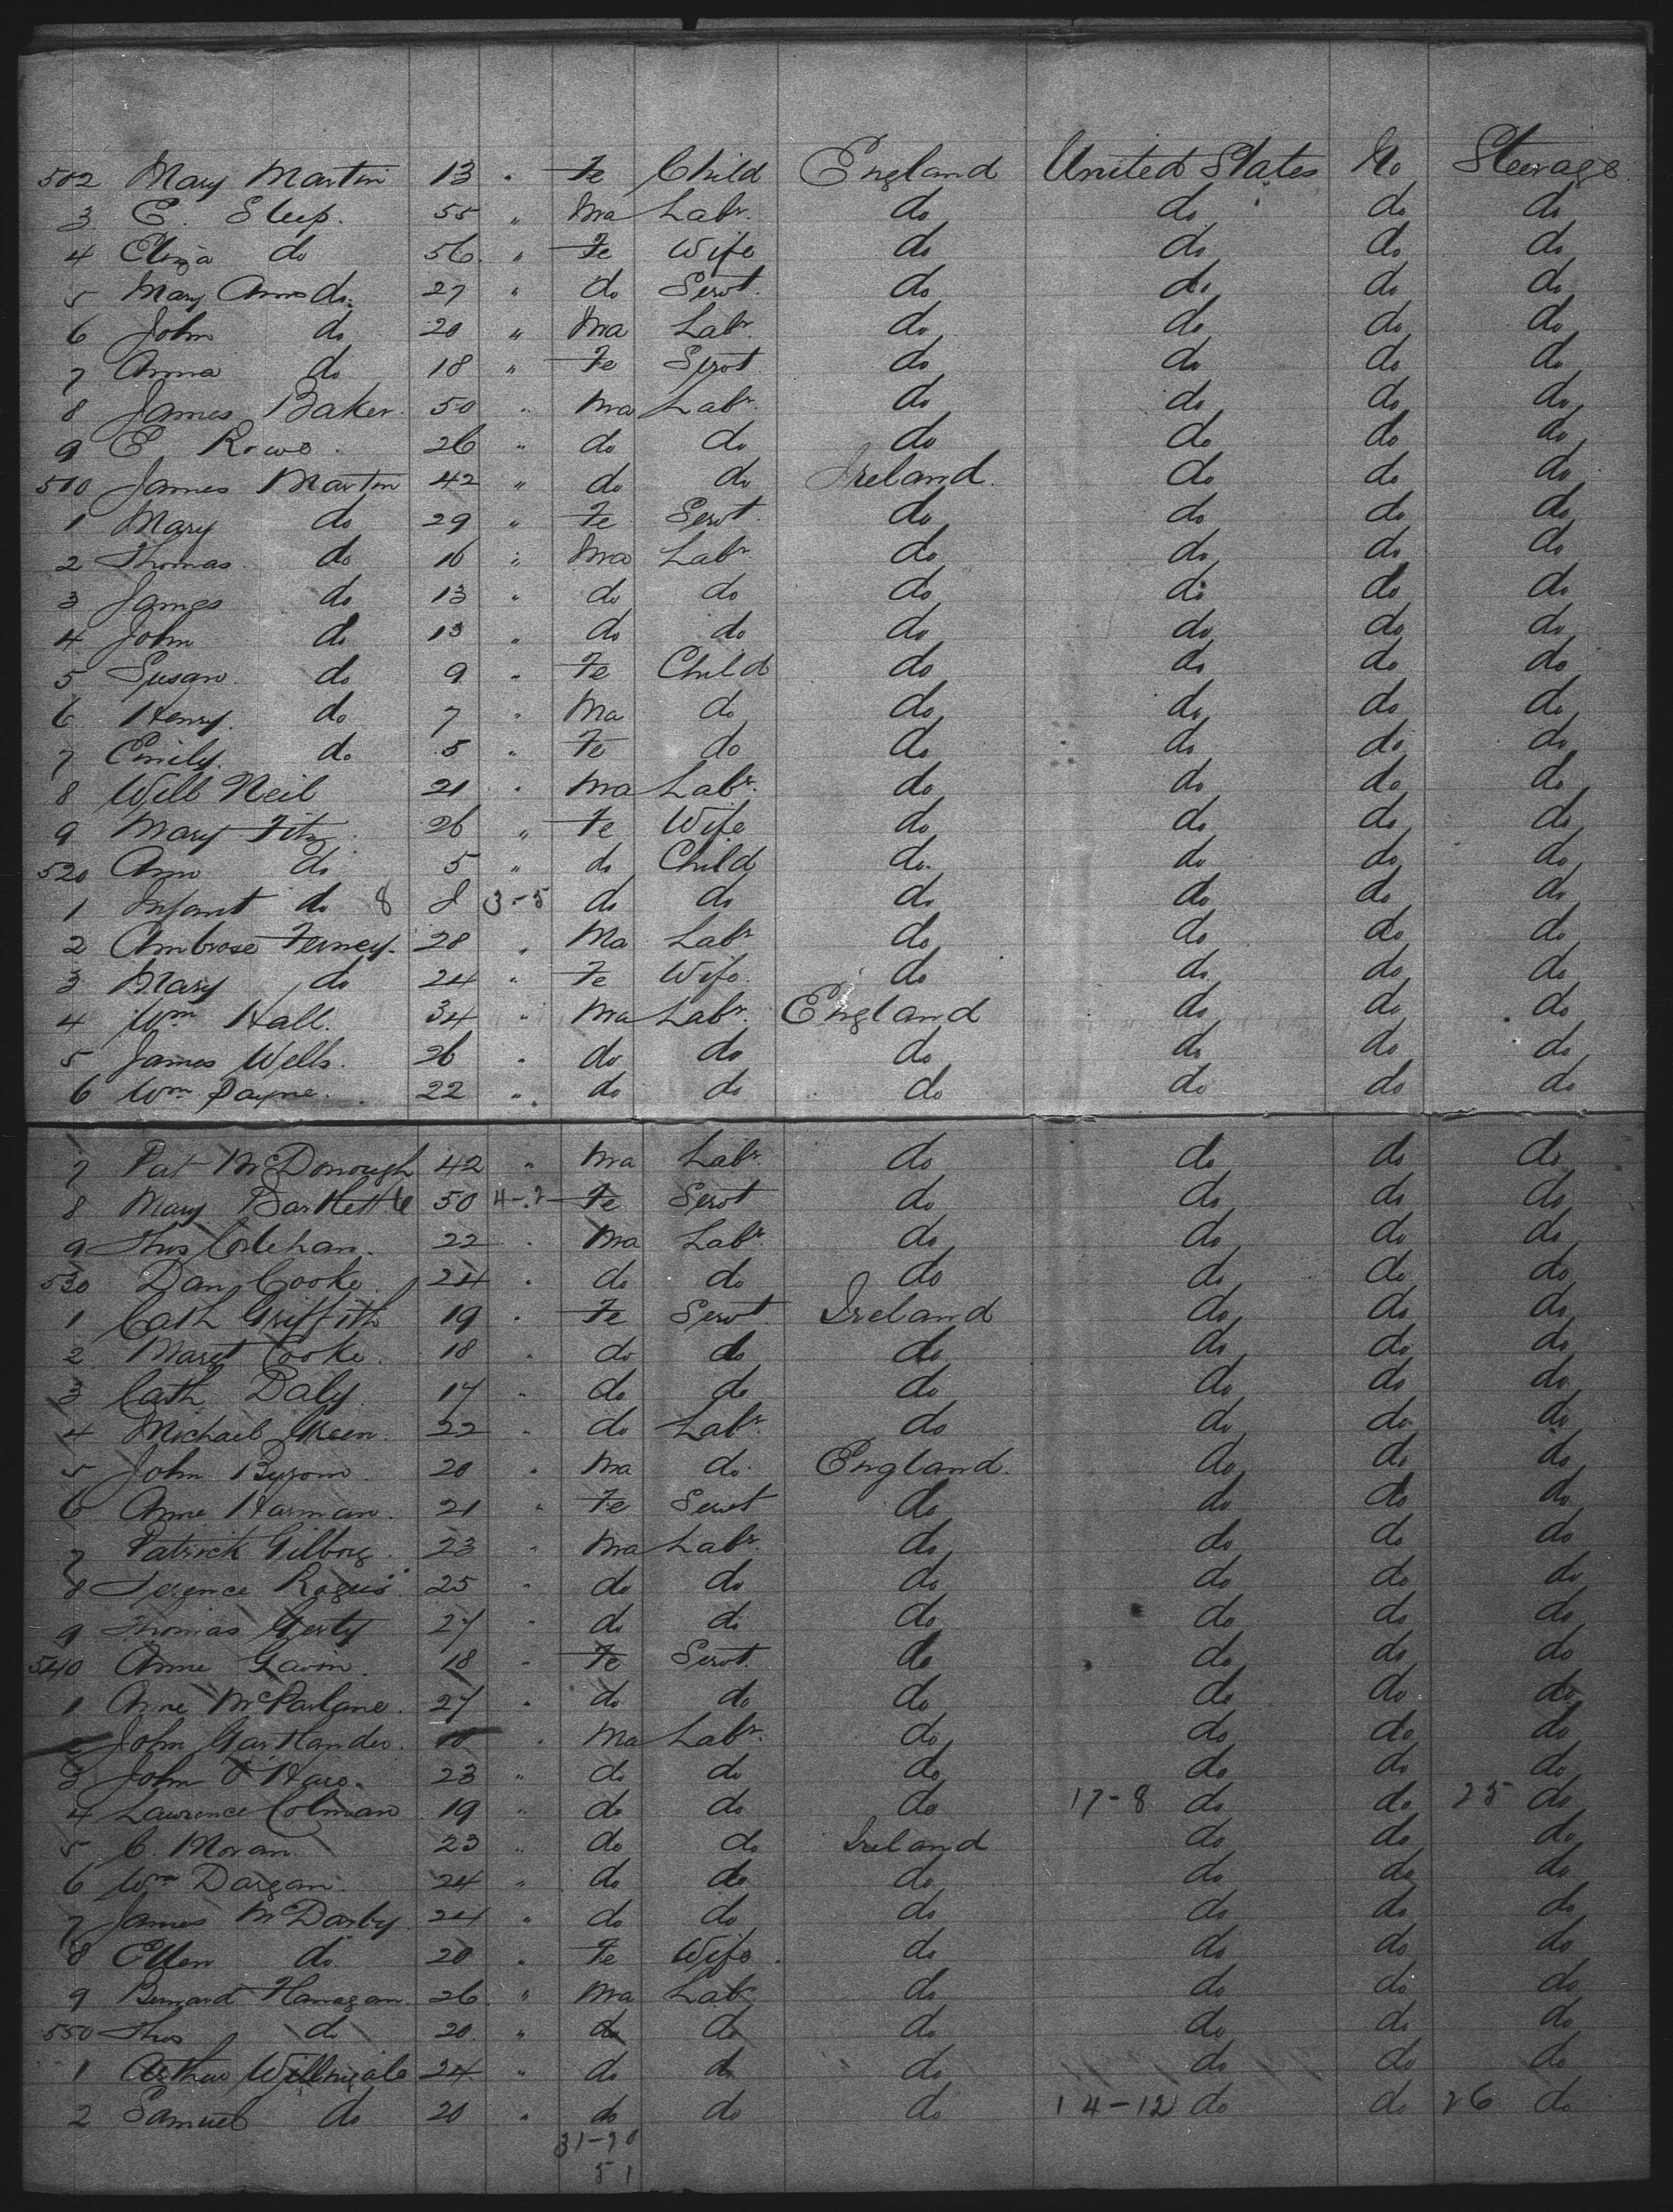 502 Mary Martin 13 " Fe Child England United States No Steerage
3 E. Sleep. 55 " Ma Labr. do do do do
4 Eliza do 56 " Fe Wife do do do do
5 Mary Ann do 27 " do Servt. do do do do
6 John do 20 " Ma Labr do do do do
7 Anna do 18 " Fe Servt do do do do
8 James Baker 50 " Ma Labr. do do do do
9 E Rowe 26 " do do do do do do
510 James Martin 42 " do do Ireland. do do do
1 Mary do 29 " Fe Servt. do do do do
2 Thomas do 16 " Ma Labr do do do do
3 James do 13 " do do do do do do
4 John do 13 " do do do do do do
5 Susan do 9 " Fe Child do do do do
6 Henry do 7 " Ma do do do do do
7 Emily do 5 " Fe do do do do do
8 Will Neil 21 " Ma Labr. do do do do
9 Mary Fitz 26 " Fe Wife do do do do
520 Ann do 5 " do Child do do do do
1 Infant do 8 3-5 do do do do do do
2 Ambrose Ferney 28 " Ma Labr do do do do
3 Mary do 24 " Fe Wife do do do do
4 Wm Hall. 34 " Ma Labr. England do do do
5 James Wells. 26 " do do do do do do
6 Wm Payne. 22 " do do do do do do
7 Pat McDonough 42 " Ma Labr. do do do do
8 Mary 50 Fe Servt do do do do
9 Thos 22 " Ma Labr. do do do do
530 Dan Cooke 24 " do do do do do do
1 Cath Griffith 19 " Fe Servt. Ireland do do do
2 Margt Cooke 18 " do do do do do do
3 Cath Daly 17 " do do do do do do
4 Michael Green. 22 " do Labr. do do do do
5 John Byrom 20 " Ma do England. do do do
6 Anne Harman. 21 " Fe Servt do do do do
7 Patrick 23 " Ma Labr. do do do do
8 Terence 25 " do do do do do do
9 Thomas Gerty 27 " do do do do do do
540 Anne Gavin. 18 " Fe Servt. do do do do
1 Anne McParlane. 27 " do do do do do do
2 John " Ma Labr. do do do do
3 John O'Hara. 23 " do do do do do do
4 Lawrence Colman 19 " do do do 17-8 do do 25 do
5 C. Moran. 23 " do do Ireland do do do
6 Wm Dargan. 24 " do do do do do do
7 James McDarby. 24 " do do do do do do
8 Ellen do. 20 " Fe Wife. do do do do
9 Bernard Flanagan. 26 " Ma Labr do do do do
550 Thos do 20. " do do do do do do
1 Arthur Willingale 24 " do do do do do do
2 Samuel do 20 " do do do 14-12 do do 26 do
31-20
51